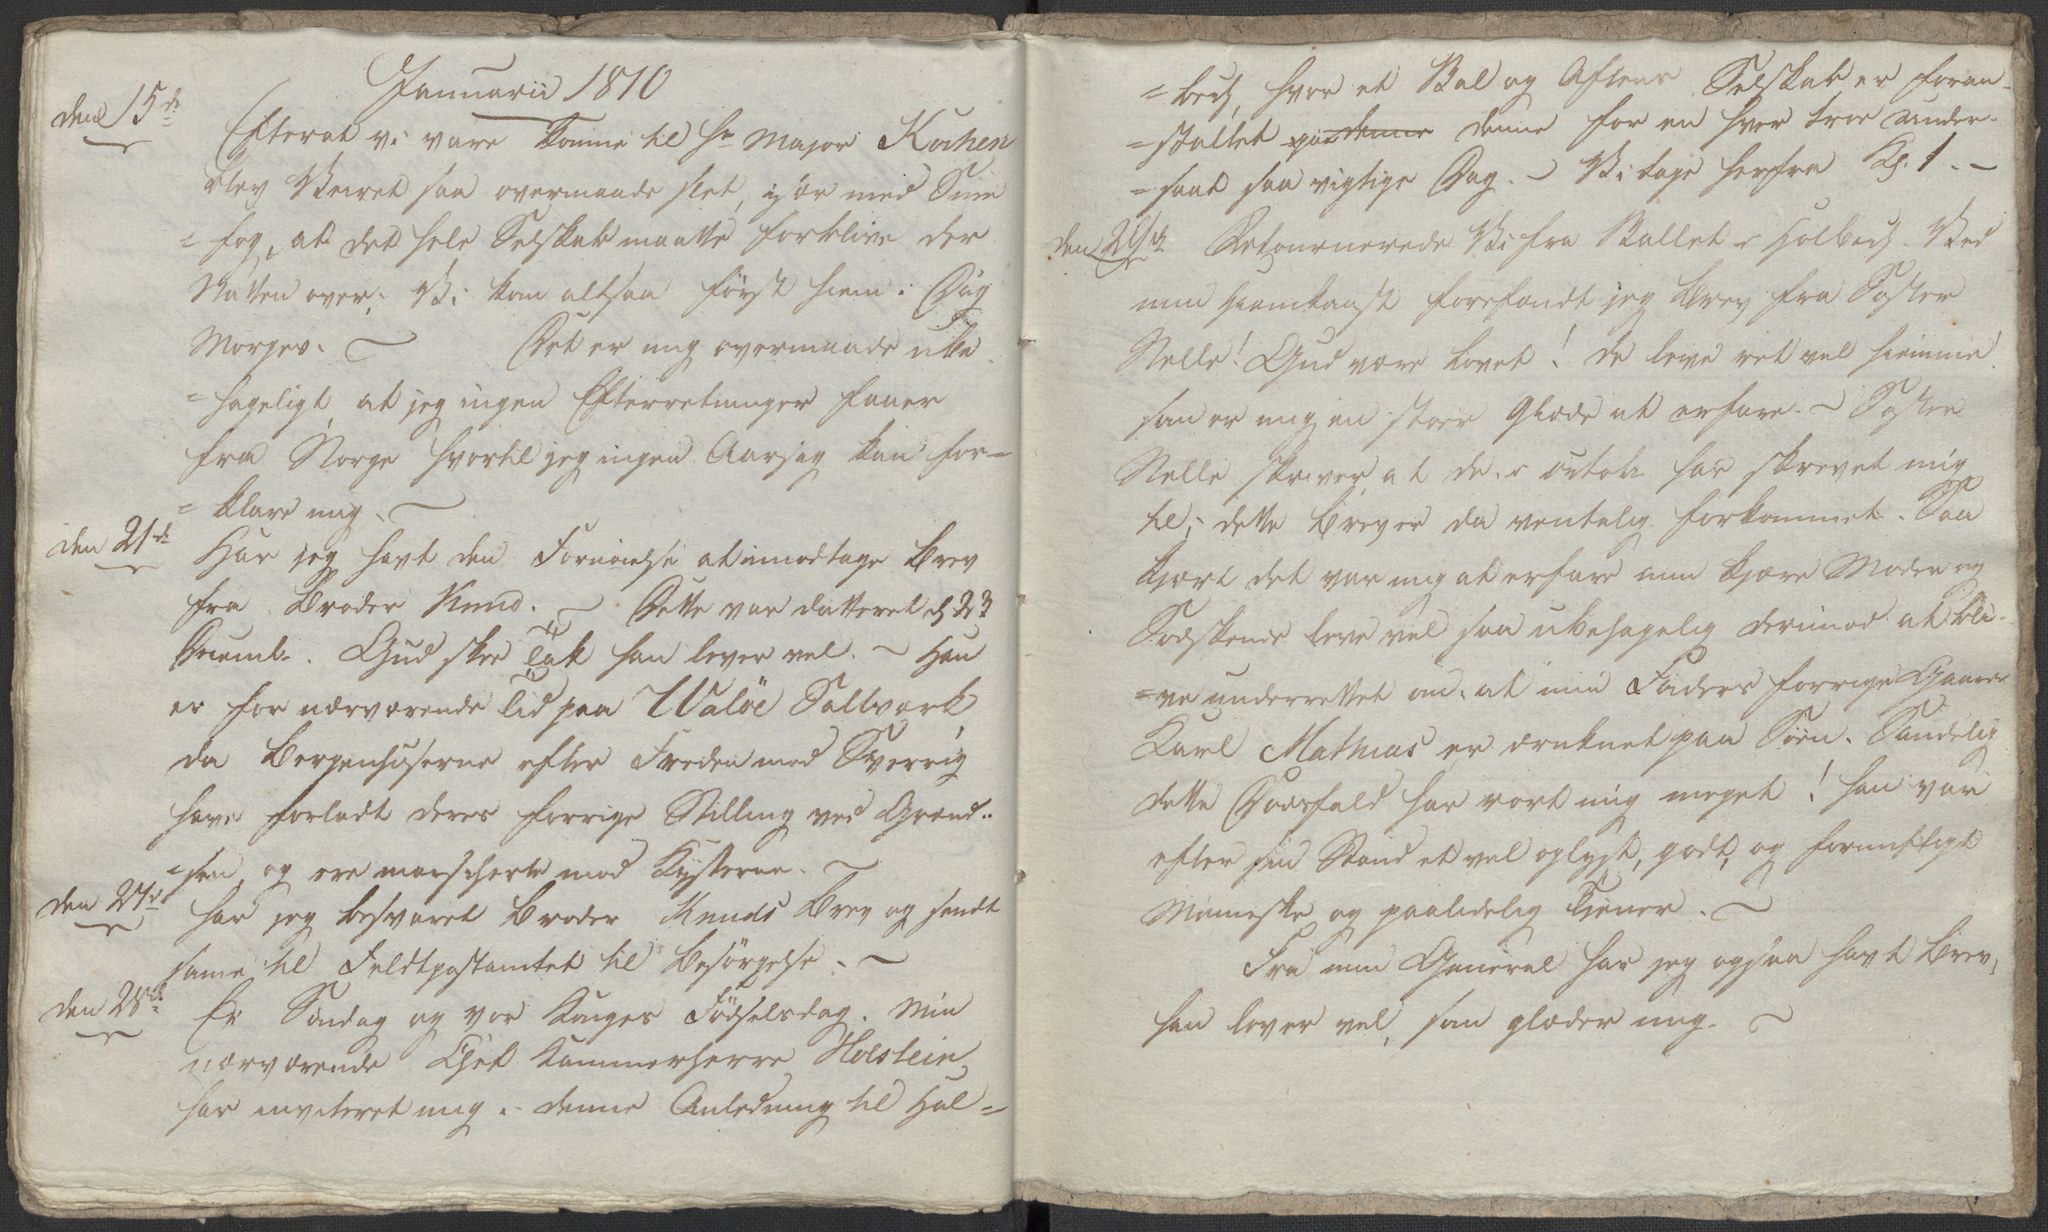 Januarii 1810
den 15de Efterat vi vare komne til Hr Major Kochen
blev Veiret saa overmaade slet, især med Snee
=fog, at det hele Selskab maatte forblive der
Natten over; Vi kom altsaa først hiem i Dag
Morges. ~ Det er mig overmaade ube=
=hageligt at jeg ingen Efterretninger faaer
fra Norge hvortil jeg ingen Aarsag kan for=
=klare mig. ~
den 21de Har jeg havt den Fornöielse at imodtage Brev
fra Broder Knud. ~ Dette var datteret d 23
Decemb. Gud skee Tak han lever vel. ~ Han
er for nærværende Tid paa Walöe Saltværk
da Bergenhuserne efter Freden med Sverrig
have forladt deres forrige Stilling ved Grænd=
=sen, og ere marscherte mod Kysterne. ~
den 27de har jeg besvaret Broder Knuds Brev og sendt
samme til Feldtpostamtet til Besörgelse. ~
den 28de Er Søndag og vor Konges Födselsdag. Min
nærværende Chef Kammerherre Holstein,
har inviteret mig i denne Anledning til Hol=
=bech, hvor et Bal og Aftens Selskab er foran=
=staltet paa denne denne for en hver troe Under=
=saat saa vigtige Dag. ~ Vi tage herfra Kl. 1. ~
den Retournerede Vi fra Ballet i Holbech. Ved
min Hiemkomst forefandt jeg Brev fra Søster
Nelle! Gud være lovet! de leve ret vel hiemme!
som er mig en stoer Glæde at erfare. ~ Søster
Nelle skriver, at de i Octobr har skrevet mig
til; dette Brev er da ventelig forkommet. Saa
kjært det var mig at erfare min kjære Moder og
Sødskende leve vel saa ubehagelig derimod at bli=
=ve underrettet om, at min Faders forrige Gaards
Karl Mathias er druknet paa Søen. Sandelig
dette Dødsfald har rört mig meget! han var
efter sin Stand et vel oplyst, godt, og fornuftigt
Menneske og paalidelig Tjener. ~
Fra min General har jeg ogsaa havt Brev,
han lever vel, som glæder mig. ~